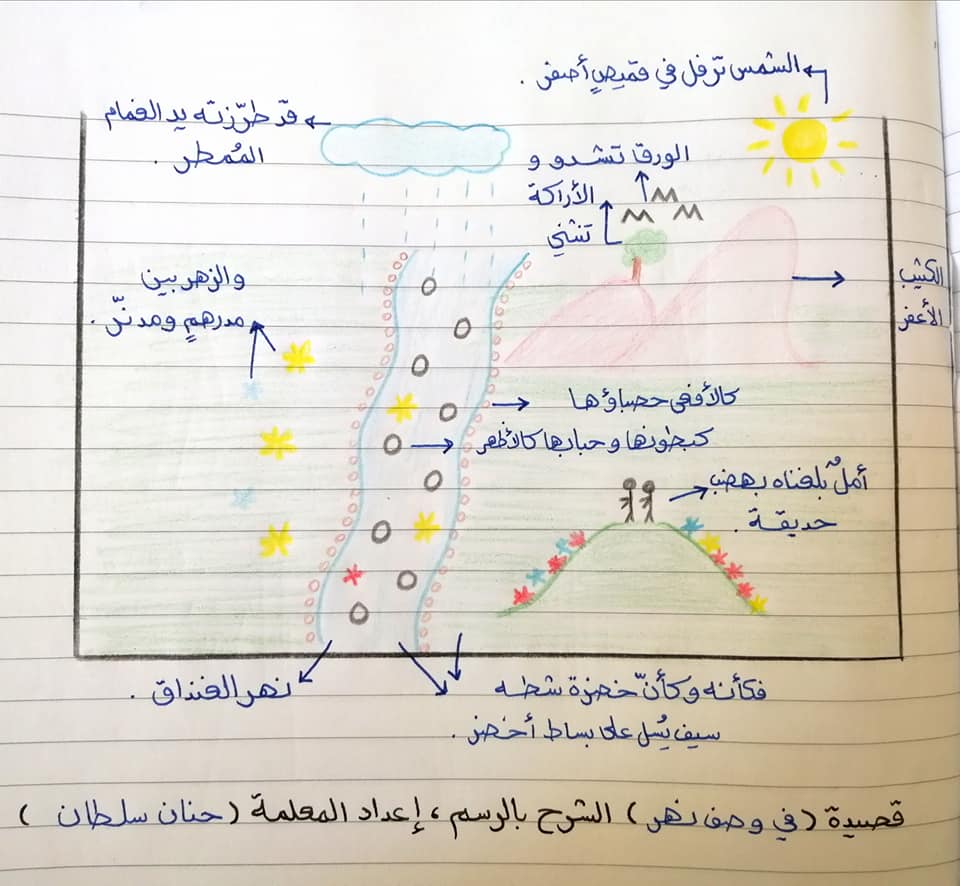 الشمس ترفل في قميصٍ أصفر .
قد طرّزته يد الغمام
المُمطر .
الورقا تشدو و
الأراكة
تنثني
والزهر بين
مدرهمٍ ومدنّر .
الكثيب
الأعفر
كالأفعى حصباؤها
كبطونها وحبابها كالأظهر
أملٌ بلغناه بهضب
حديقة .
نهر الغنداق .
فكأنه وكأنّ خضرة شطه
سيف يُسل على بساط أخضر .
قصيدة ( في وصف نهر ) الشرح بالرسم ، إعداد المعلمة ( حنان سلطان )